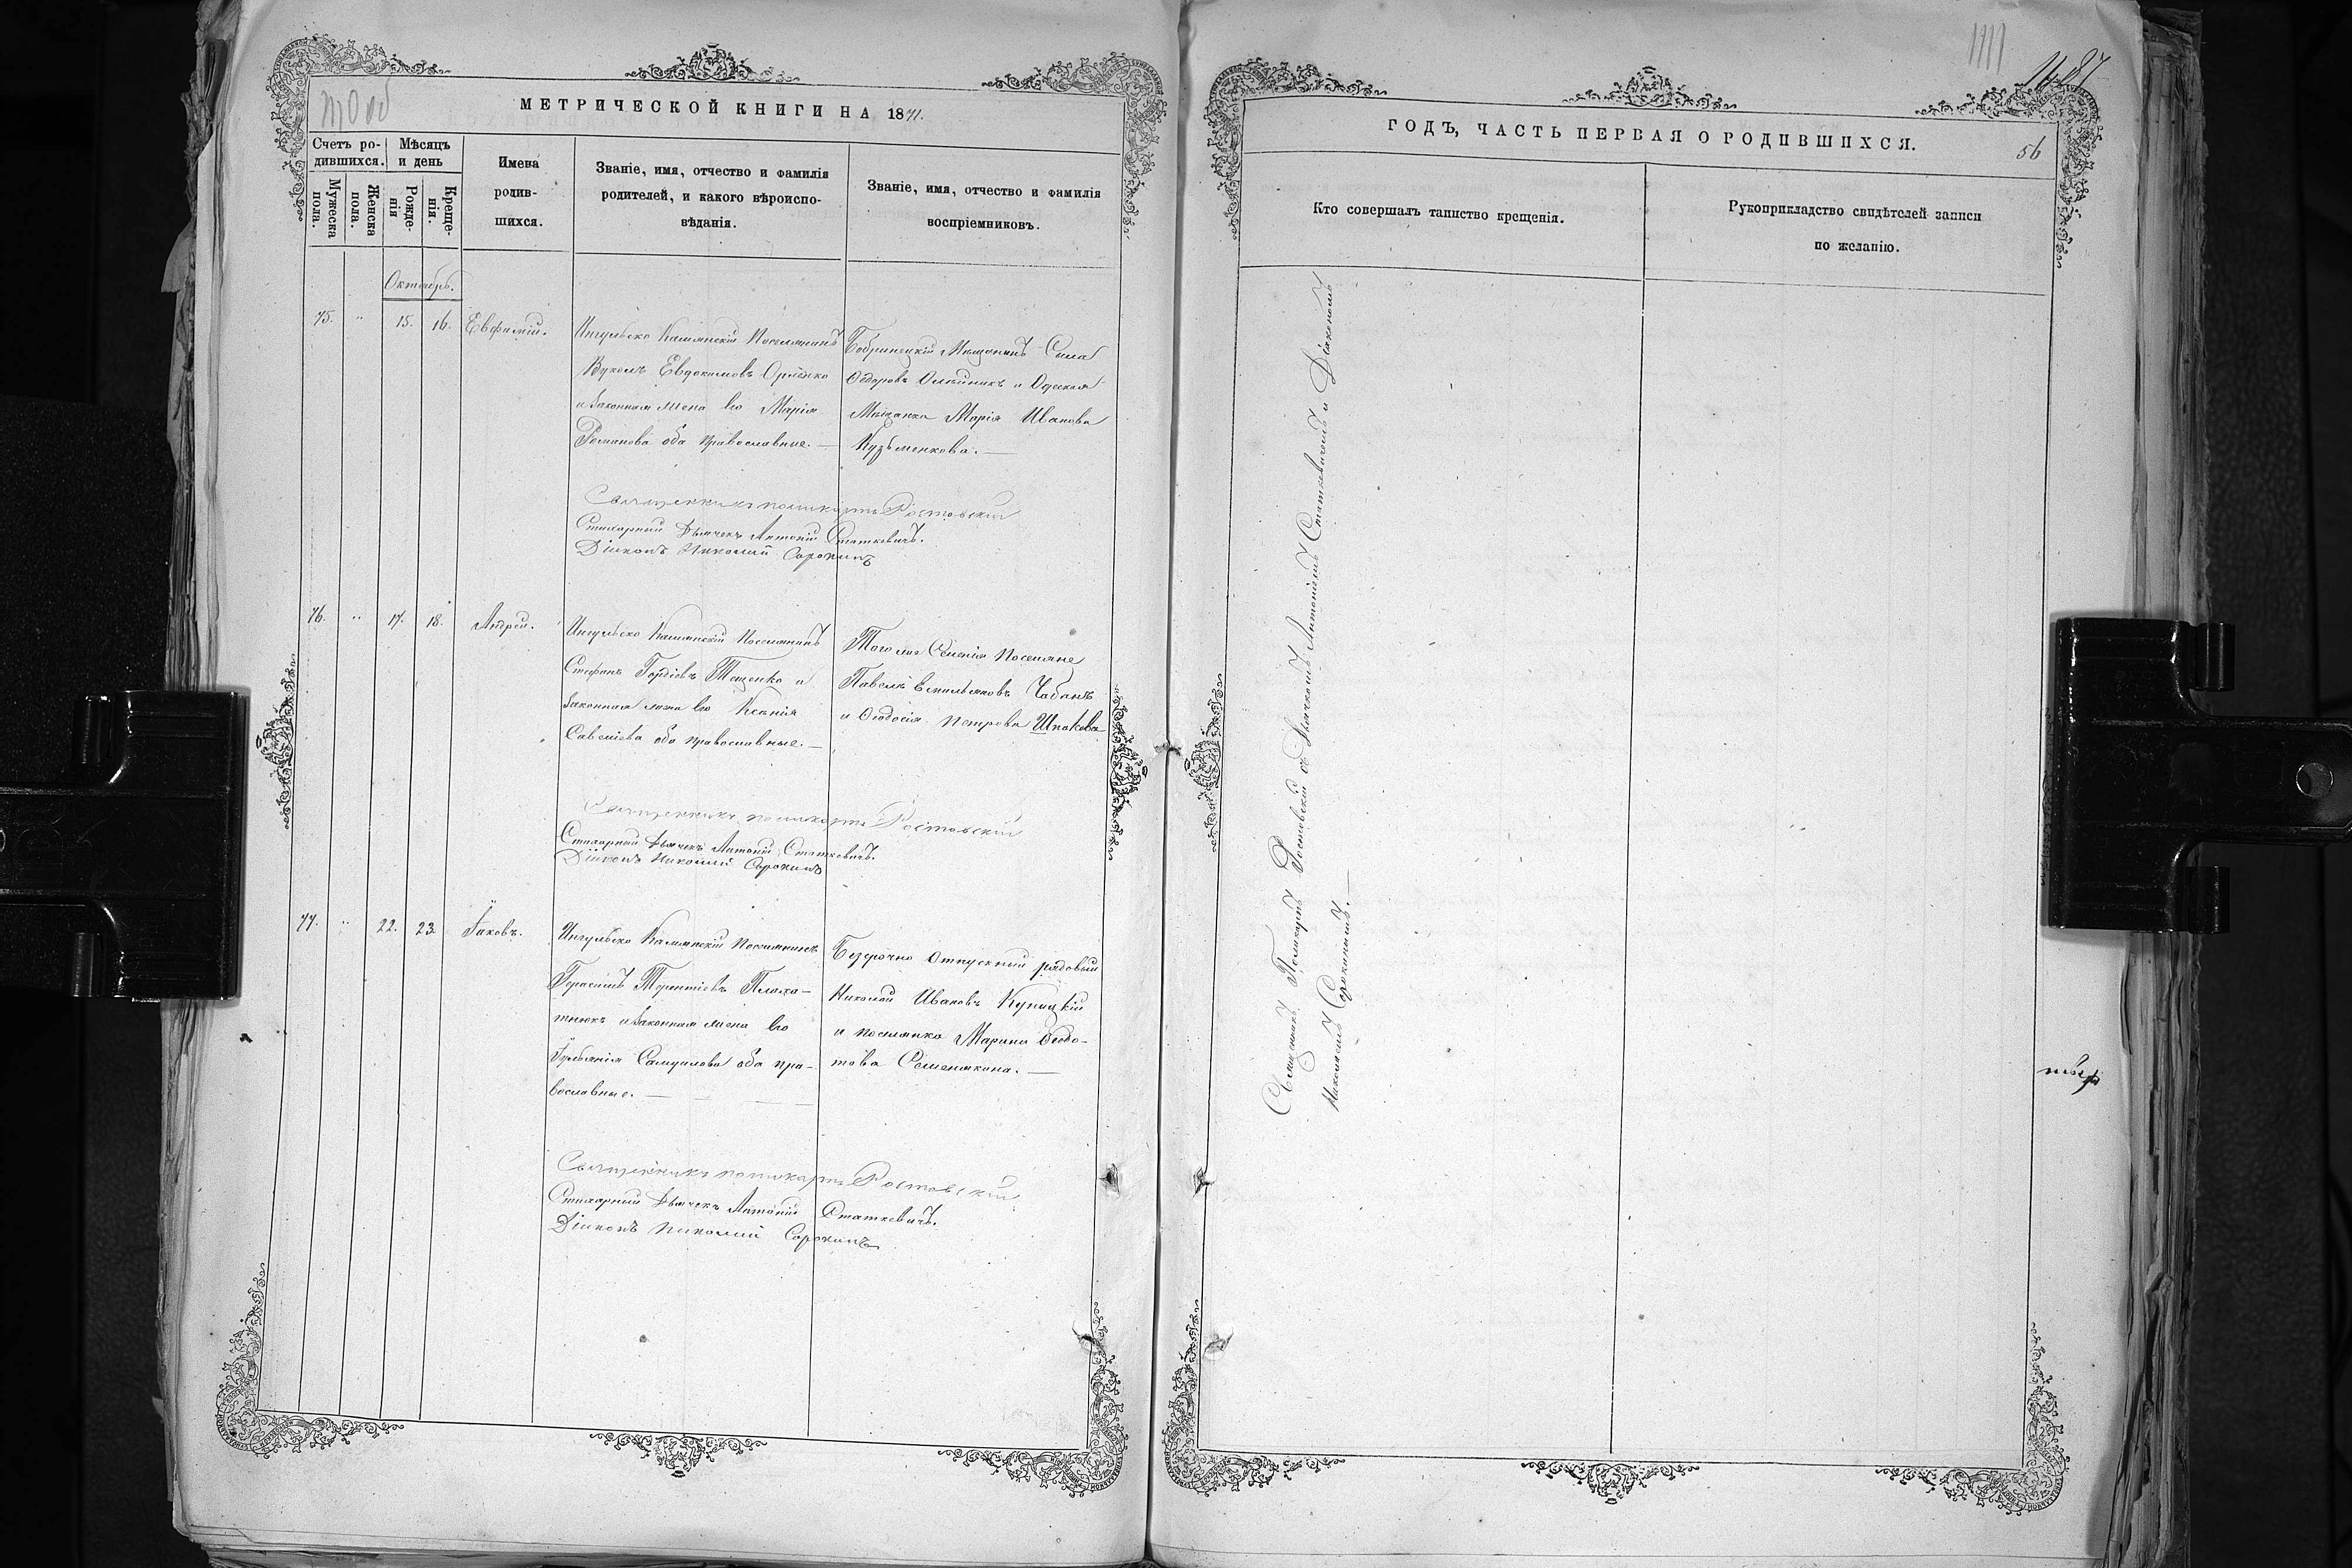 МЕТРИЧЕСКОЙ КНИГИ НА 1871.
Счетъ ро-
дившихся.
Мѣсяцъ
и день
Мужеска
пола.
Женска
пола.
Рожде-
нія
Креще-
нія.
Имена
родив-
шихся.
Званіе, имя, отчество и фамилія
родителей, и какого вѣроиспо-
вѣданія.
Званіе, имя, отчество и фамилія
воспріемниковъ.
Октябрь.
75. " 15. 16. Евфимій.
Ингульско Каменскій Поселянинъ
Вуколъ Евдокимовъ Орленко
и законная жена его Марія
Романова оба православные. —
Бобринецкій Мѣщанинъ Сила
Ѳедоровъ Олейникъ и Одеская
Мѣщанка Марія Иванова
Кузьменкова. —
Священникъ Поликарпъ Ростовскій
Стихарный Дьячекъ Антоній Статкевичъ.
Діаконъ Николай Сорокинъ
76. " 17. 18. Андрей.
Ингульско Каменскій Поселянинъ
Стефанъ Гордіевъ Тещенко и
законная жена его Ксенія
Савеліева оба православные. —
Того же Селенія Поселяне
Павелъ Емельяновъ Чабанъ
и Ѳеодосія Петрова Шпакова
Священникъ Поликарпъ Ростовскій
Стихарный Дьячекъ Антоній Статкевичъ.
Діаконъ Николай Сорокинъ
77. " 22. 23. Іаковъ.
Ингульско Каменскій Поселянинъ
Герасимъ Терентіевъ Плаха-
тнюкъ и законная жена его
Іуліанія Самуилова оба пра-
вославные. —
Безсрочно Отпускный рядовый
Николай Ивановъ Купицкій
и поселянка Марина Ѳедо-
това Семенякина. —
Священникъ Поликарпъ Ростовскій
Стихарный Дьячекъ Антоній Статкевичъ.
Діаконъ Николай Сорокинъ
ГОДЪ, ЧАСТЬ ПЕРВАЯ О РОДИВШИХСЯ.
56
Кто совершалъ таинство крещенія.
Рукоприкладство свидѣтелей записи
по желанію.
Священникъ Поликарпъ Ростовскій съ Дьячкомъ Антоніемъ Статкевичемъ и Діакономъ
Николаемъ Сорокинымъ. —